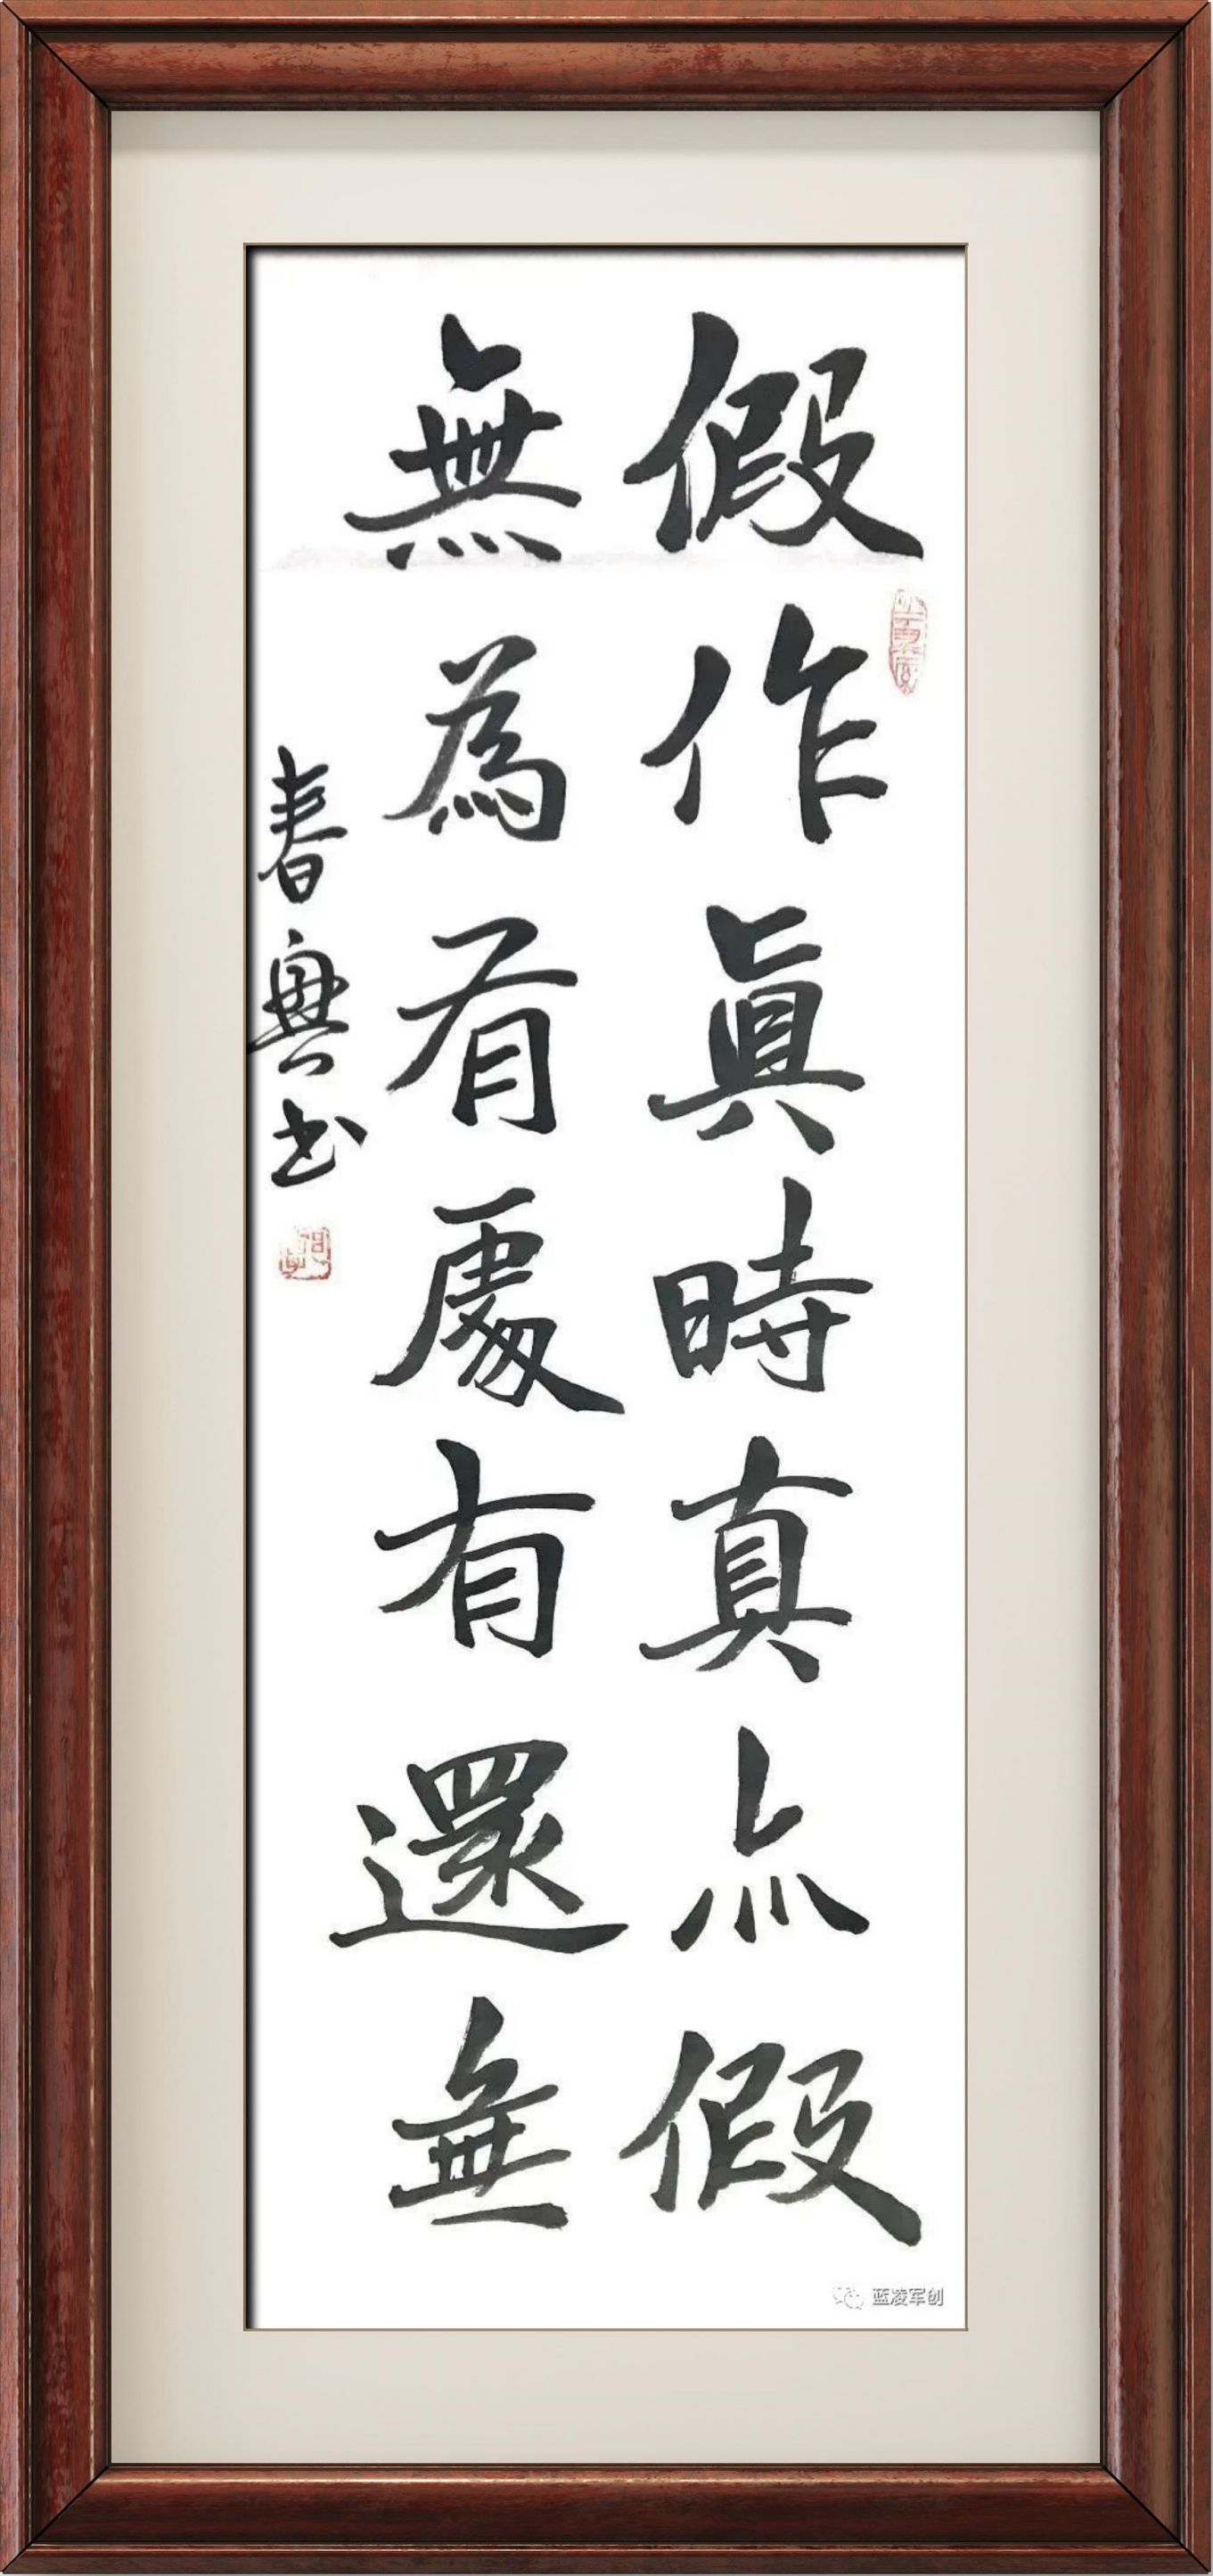 假作眞時真亦假
無為有處有還無
春興书
蓝凌军创